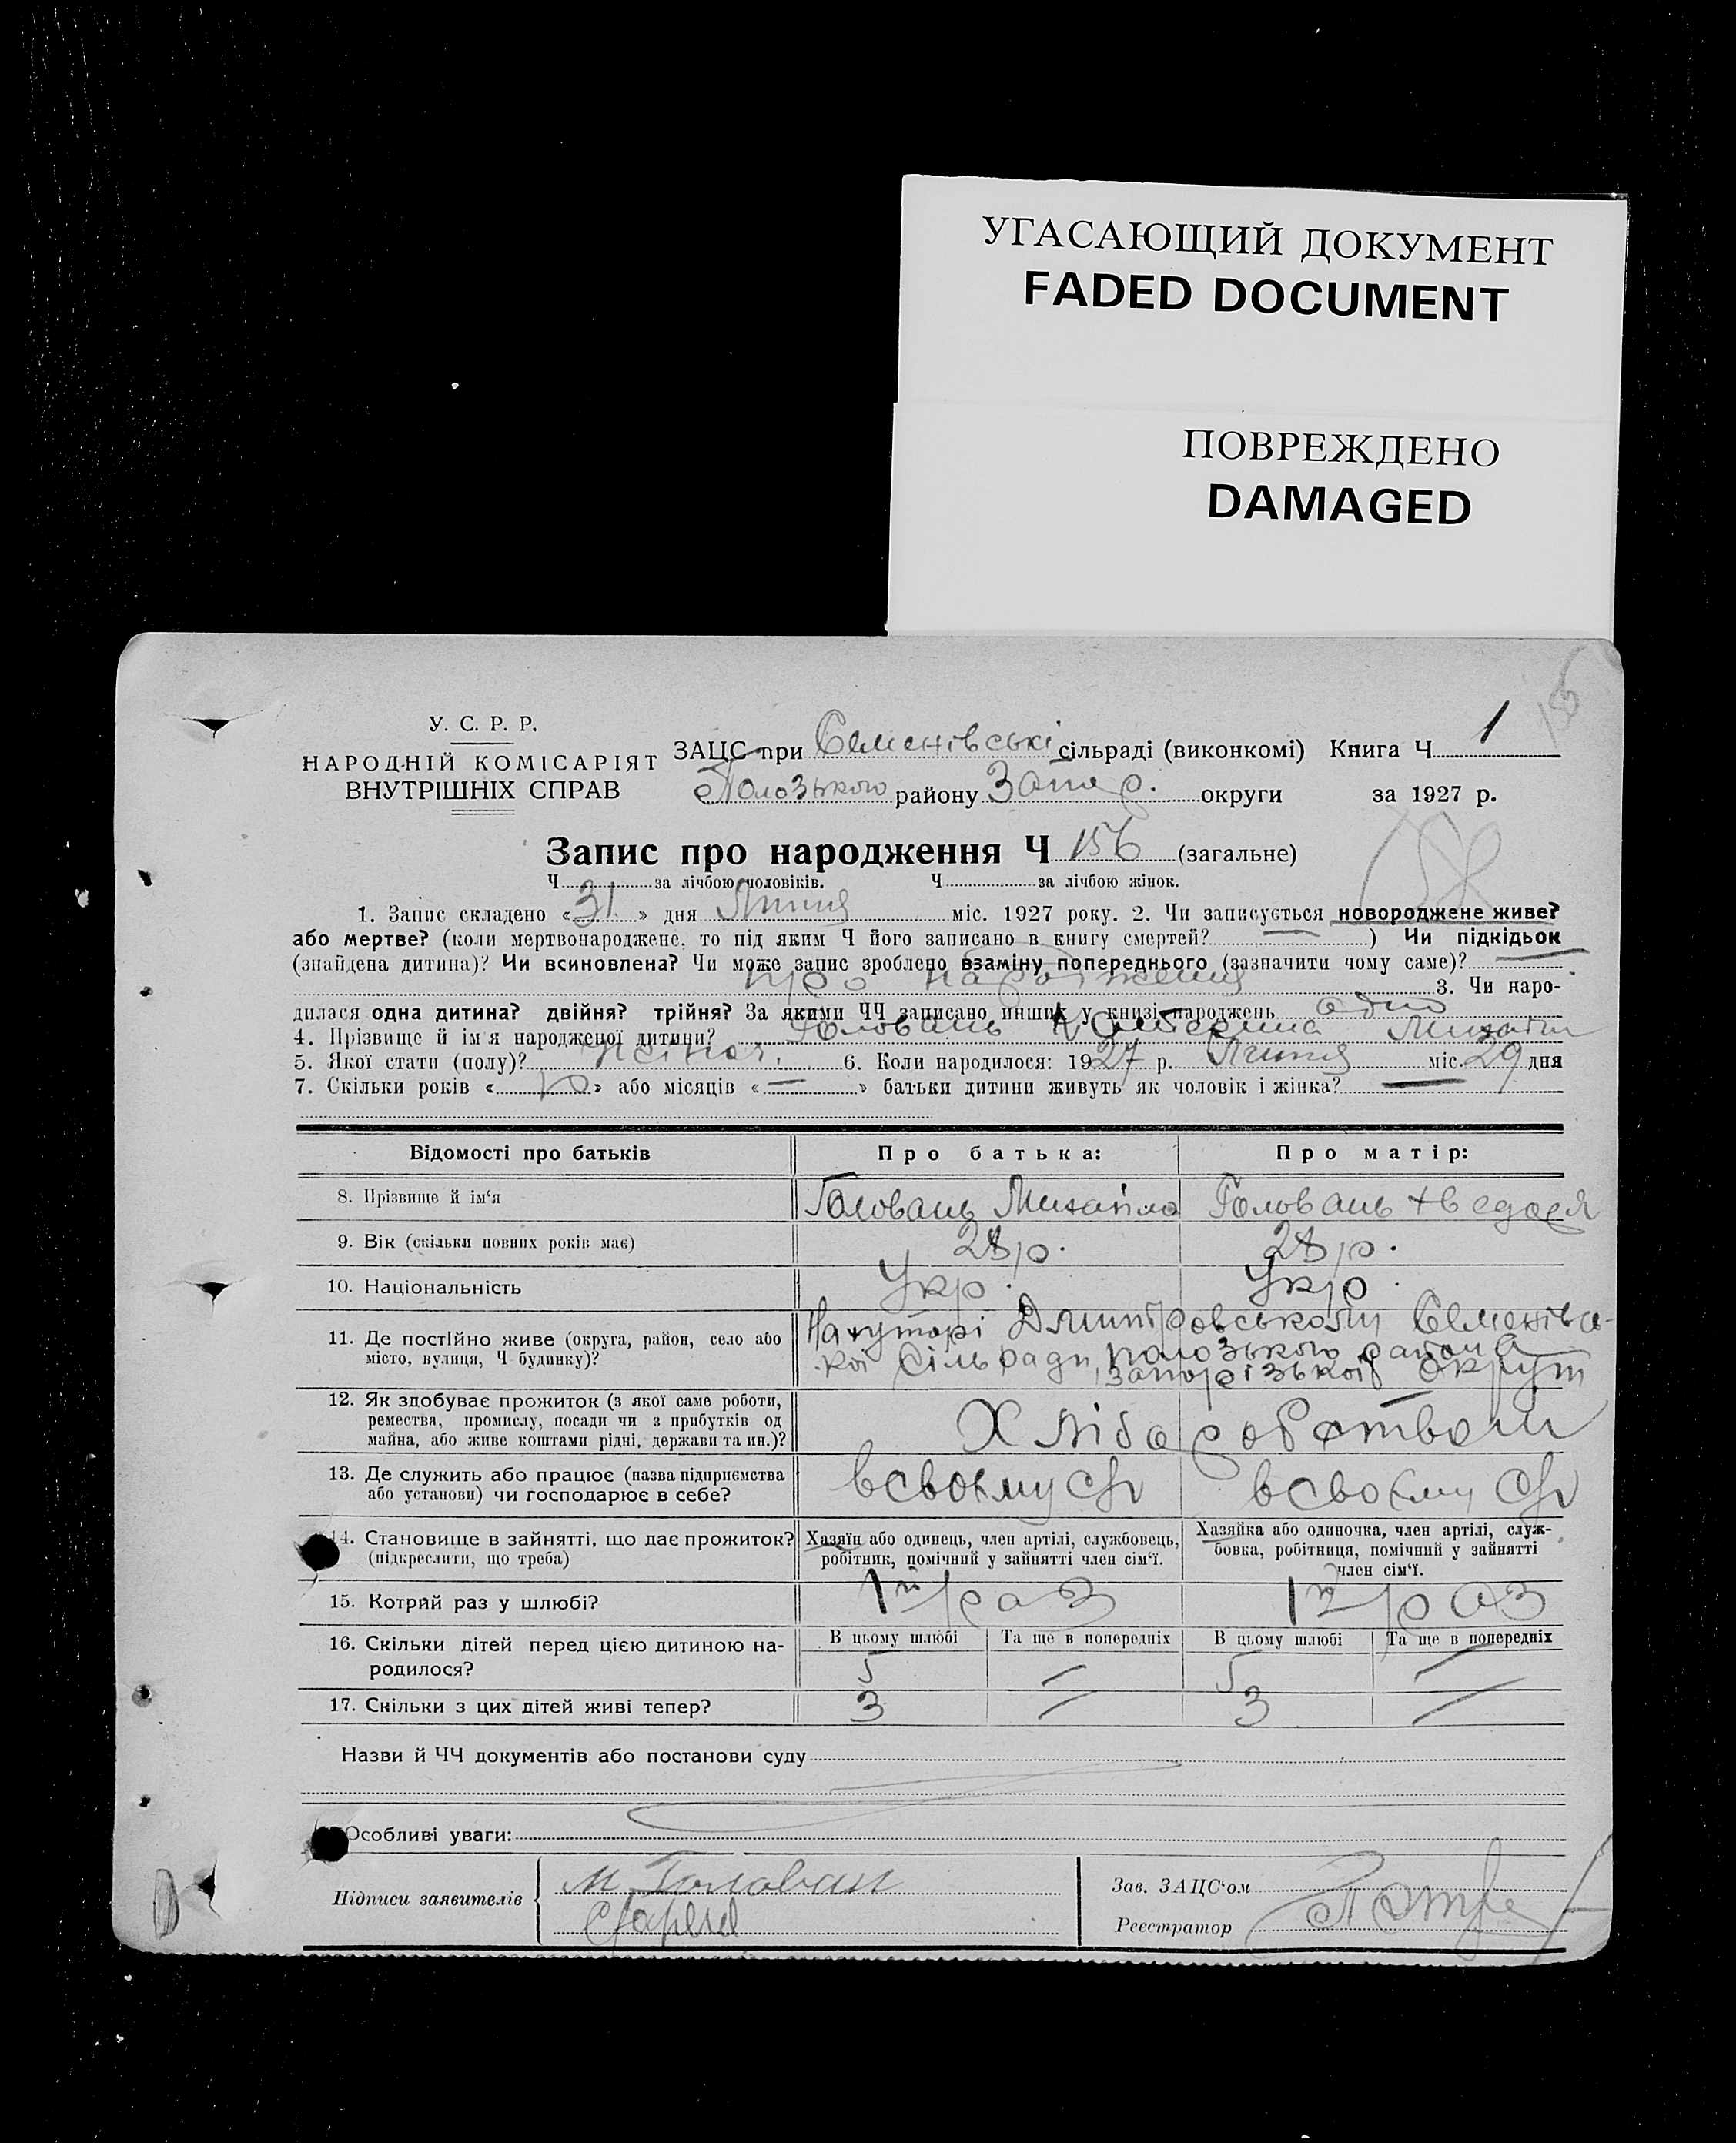 УГАСАЮЩИЙ ДОКУМЕНТ
FADED DOCUMENT
ПОВРЕЖДЕНО
DAMAGED
156
У. С. Р. Р.
НАРОДНІЙ КОМІСАРІЯТ
ВНУТРІШНІХ СПРАВ
ЗАЦС при Семенівські сільраді (виконкомі) Книга Ч 1
Полозького району Запор. округи за 1927 р.
Запис про народження Ч 156 (загальне)
158
Ч за лічбою чоловіків. Ч за лічбою жінок.
1. Запис складено «31» дня Липня міс. 1927 року. 2. Чи записується новороджене живе?
або мертве? (коли мертвонароджене, то під яким Ч його записано в книгу смертей? —) Чи підкідьок
(знайдена дитина)? Чи всиновлена? Чи може запис зроблено взаміну попереднього (зазначити чому саме)?
про народження 3. Чи наро-
дилася одна дитина? двійня? трійня? За якими ЧЧ записано инших у книзі народжень одно
4. Прізвище й ім'я народженої дитини? Головань Катерина
5. Якої стати (полу)? жіноч. 6. Коли народилося: 1927 р. Липня міс. 29 дня
7. Скільки років «10» або місяців «—» батьки дитини живуть як чоловік і жінка? —
Відомості про батьків Про батька: Про матір:
8. Прізвище й ім'я Головань Михайло Головань Хведося
9. Вік (скільки повних років має) 28 р. 28 р.
10. Національність Укр. Укр.
11. Де постійно живе (округа, район, село або
місто, вулиця, Ч будинку)?
На хуторі Дмитровському Семенівсь-
кої сільради, полозького района
запорізької округи
12. Як здобуває прожиток (з якої саме роботи,
ремества, промислу, посади чи з прибутків од
майна, або живе коштами рідні, держави та ин.)?
Хліборобством
13. Де служить або працює (назва підприємства
або установи) чи господарює в себе?
в своєму в своєму
14. Становище в зайнятті, що дає прожиток?
(підкреслити, що треба)
Хазяїн або одинець, член артілі, службовець,
робітник, помічний у зайнятті член сім'ї.
Хазяйка або одиночка, член артілі, служ-
бовка, робітниця, помічний у зайнятті
член сім'ї.
15. Котрий раз у шлюбі? 1й раз 1й раз
16. Скільки дітей перед цією дитиною на-
родилося?
В цьому шлюбі Та ще в попередніх В цьому шлюбі Та ще в попередніх
5 — 5 —
17. Скільки з цих дітей живі тепер? 3 — 3 —
Назви й ЧЧ документів або постанови суду
Особливі уваги:
Підписи заявителів
М. Головань
Зав. ЗАЦС'ом
Реєстратор